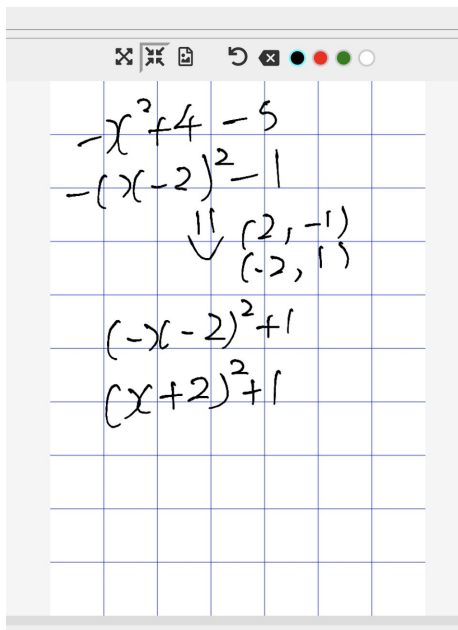 -x²+4-5
-(x-2)²-1
⇓ (2,-1)
(-2,1)
(-x-2)²+1
(x+2)²+1